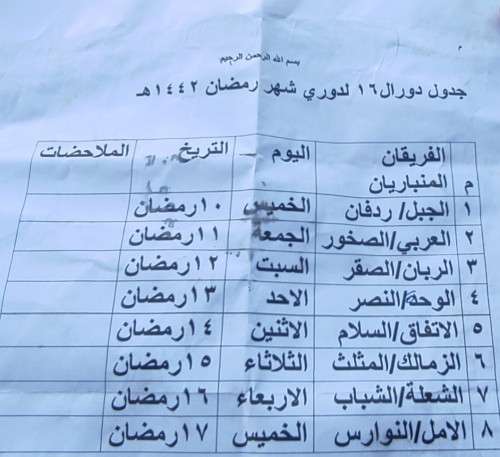 بسم الله الرحمن الرحيم
جدول دورال١٦ لدوري شهر رمضان ١٤٤٢هـ
م الفريقان المنباريان اليوم التريخ الملاحضات
١ الجبل/ ردفان الخميس ١٠رمضان
٢ العربي/الصخور الجمعة ١١رمضان
٣ الربان/الصقر السبت ١٢رمضان
٤ الوحدة/النصر الاحد ١٣رمضان
٥ الاتفاق/السلام الاثنين ١٤رمضان
٦ الزمالك/المثلث الثلاثاء ١٥رمضان
٧ الشعلة/الشباب الاربعاء ١٦رمضان
٨ الامل/النوارس الخميس ١٧رمضان